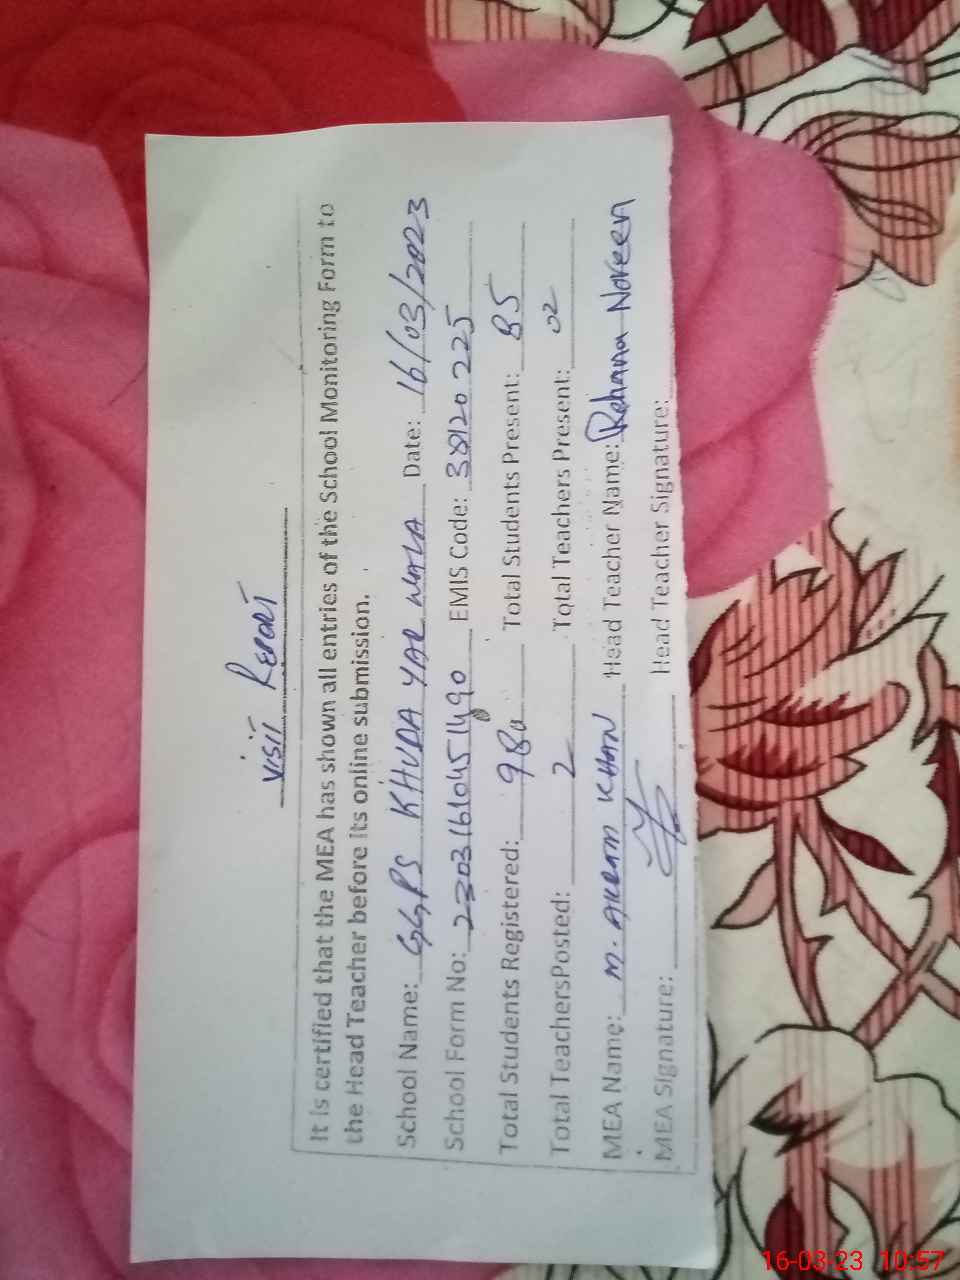 VISIT REPORT
It is certified that the MEA has shown all entries of the School Monitoring Form to
the Head Teacher before its online submission.
School Name: GGPS KHUDA YAR WALA Date: 16/03/2023
School Form No: 23031610451490 EMIS Code: 38120225
Total Students Registered: 98 Total Students Present: 85
Total TeachersPosted: 2 Total Teachers Present: 02
MEA Name: M. AKRAM KHAN Head Teacher Name: Rehana Noreen
MEA Signature: Head Teacher Signature:
16-03-23 10:57